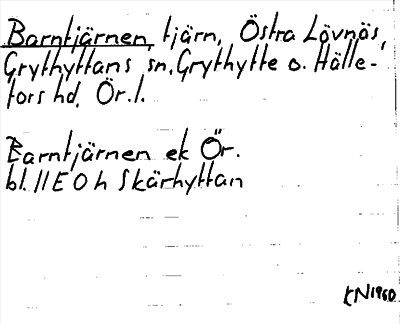 Barntjärnen, tjärn, Östra Lövnäs,
Grythyttans sn, Grythytte o. Hälle-
fors hd, Ör. l.
Barntjärnen ek Ör.
bl. 11E 0h Skärhyttan
KN1960